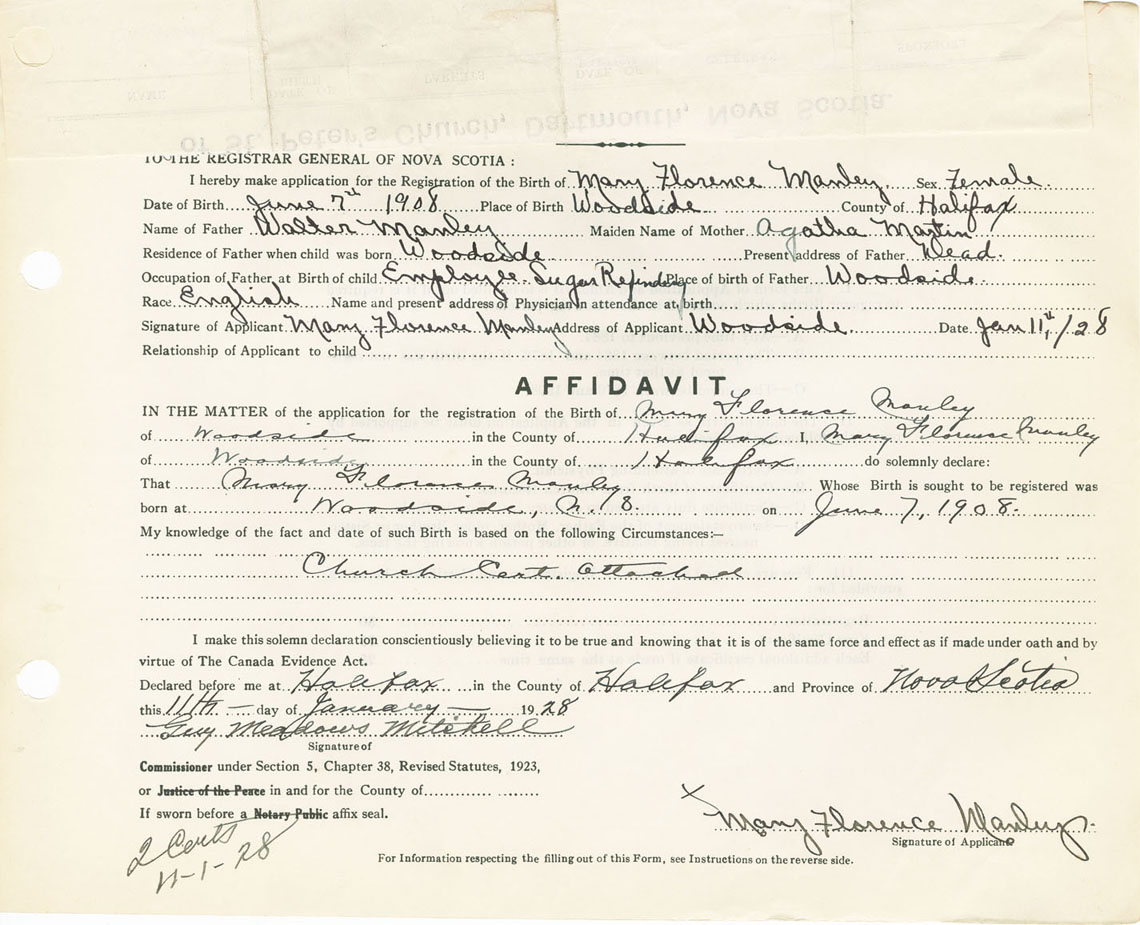 of St. Peter's Church, Dartmouth, Nova Scotia.
TO THE REGISTRAR GENERAL OF NOVA SCOTIA :
I hereby make application for the Registration of the Birth of Mary Florence Manley. Sex Female.
Date of Birth June 7th 1908 Place of Birth Woodside County of Halifax
Name of Father Walter Manley Maiden Name of Mother Agatha Martin
Residence of Father when child was born Woodside Present address of Father Dead.
Occupation of Father at Birth of child Employee Sugar Refindery Place of birth of Father Woodside.
Race English Name and present address of Physician in attendance at birth
Signature of Applicant Mary Florence Manley Address of Applicant Woodside. Date Jan 11, /28
Relationship of Applicant to child
AFFIDAVIT
IN THE MATTER of the application for the registration of the Birth of Mary Florence Manley
of Woodside in the County of Halifax I, Mary Florence Manley
of Woodside in the County of Halifax do solemnly declare:
That Mary Florence Manley Whose Birth is sought to be registered was
born at Woodside, N. S. on June 7, 1908.
My knowledge of the fact and date of such Birth is based on the following Circumstances:—
Church Cert. attached
I make this solemn declaration conscientiously believing it to be true and knowing that it is of the same force and effect as if made under oath and by
virtue of The Canada Evidence Act.
Declared before me at Halifax in the County of Halifax and Province of Nova Scotia
this 11th — day of January — 1928
Guy Meadows Mitchell
Signature of
Commissioner under Section 5, Chapter 38, Revised Statutes, 1923,
or Justice of the Peace in and for the County of
If sworn before a Notary Public affix seal.
X Mary Florence Manley.
Signature of Applicant
2 Certs
11-1-28
For Information respecting the filling out of this Form, see Instructions on the reverse side.